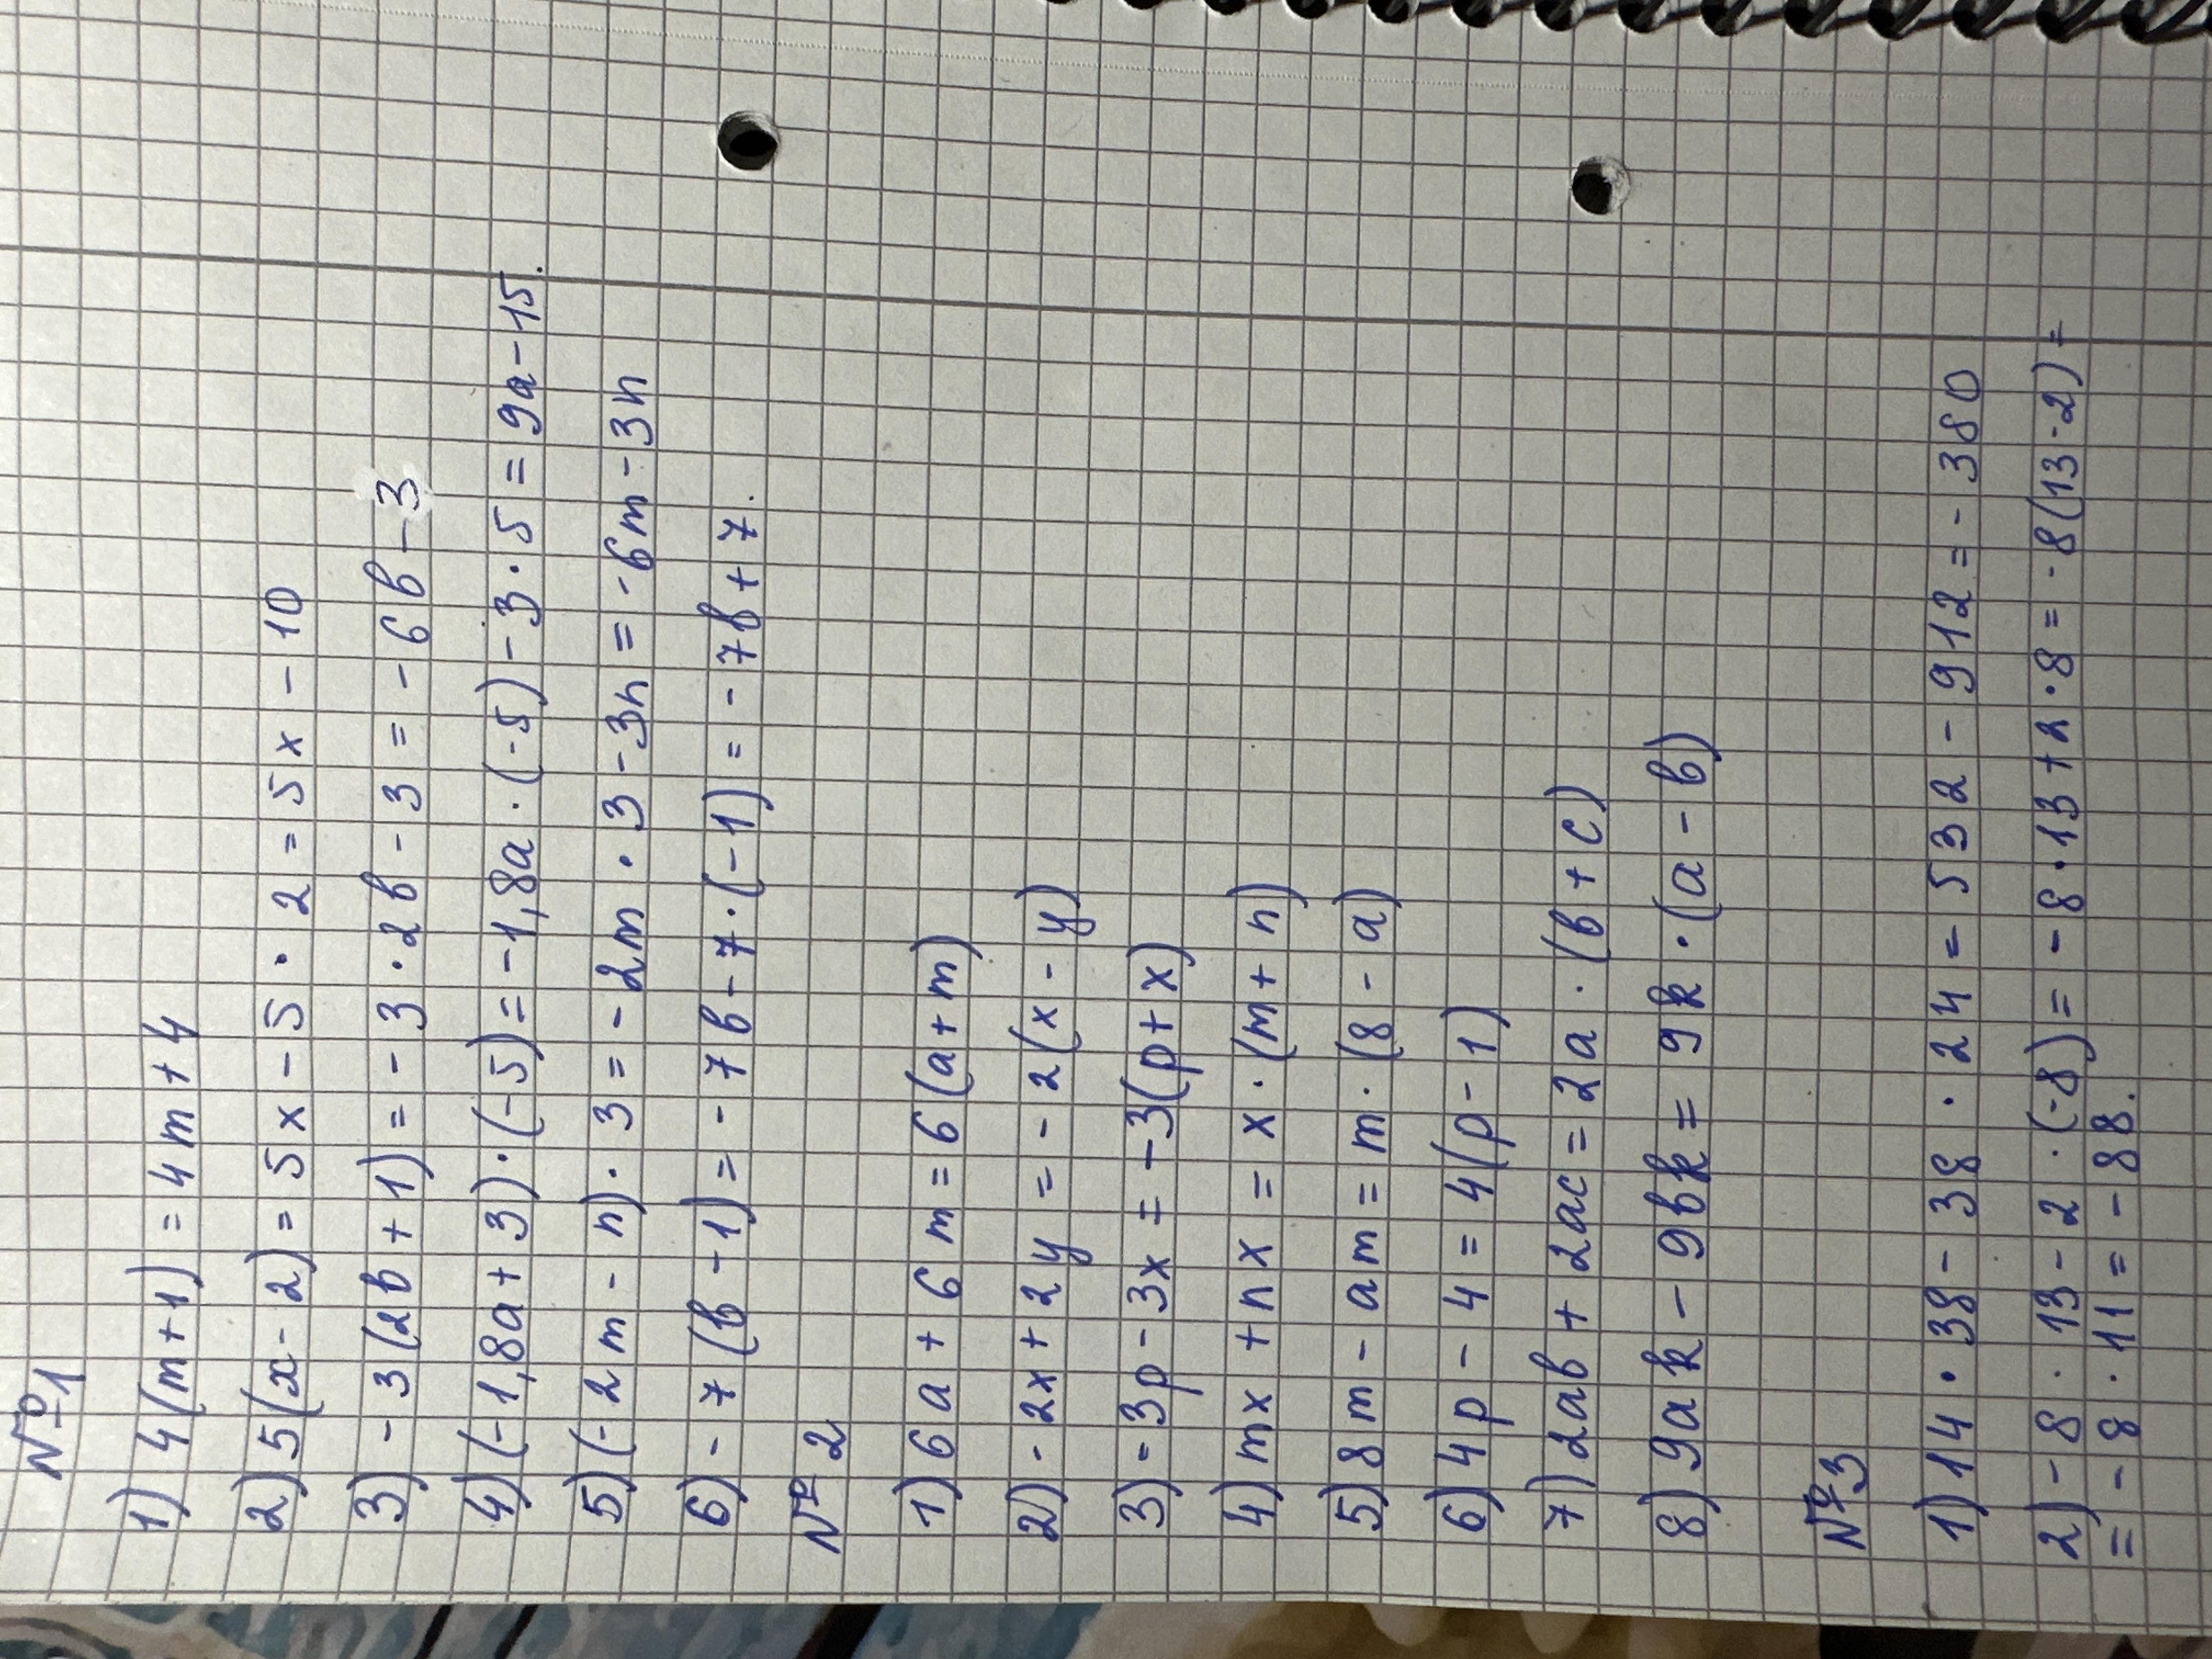 №1
1) 4(m+1) = 4m+4
2) 5(x-2) = 5x-5·2 = 5x-10
3) -3(2в+1) = -3·2в-3 = -6в-3
4) (-1,8a+3)·(-5) = -1,8a·(-5)-3·5 = 9a-15.
5) (-2m-n)·3 = -2m·3-3n = -6m-3n
6) -7(в-1) = -7в-7·(-1) = -7в+7.
№2
1) 6a+6m = 6(a+m)
2) -2x+2y = -2(x-y)
3) -3p-3x = -3(p+x)
4) mx+nx = x·(m+n)
5) 8m-am = m·(8-a)
6) 4p-4 = 4(p-1)
7) 2aв+2ac = 2a·(в+c)
8) 9ak-9вk = 9k·(a-в)
№3
1) 14·38-38·24 = 532-912 = -380
2) -8·13-2·(-8) = -8·13+2·8 = -8(13-2) =
= -8·11 = -88.